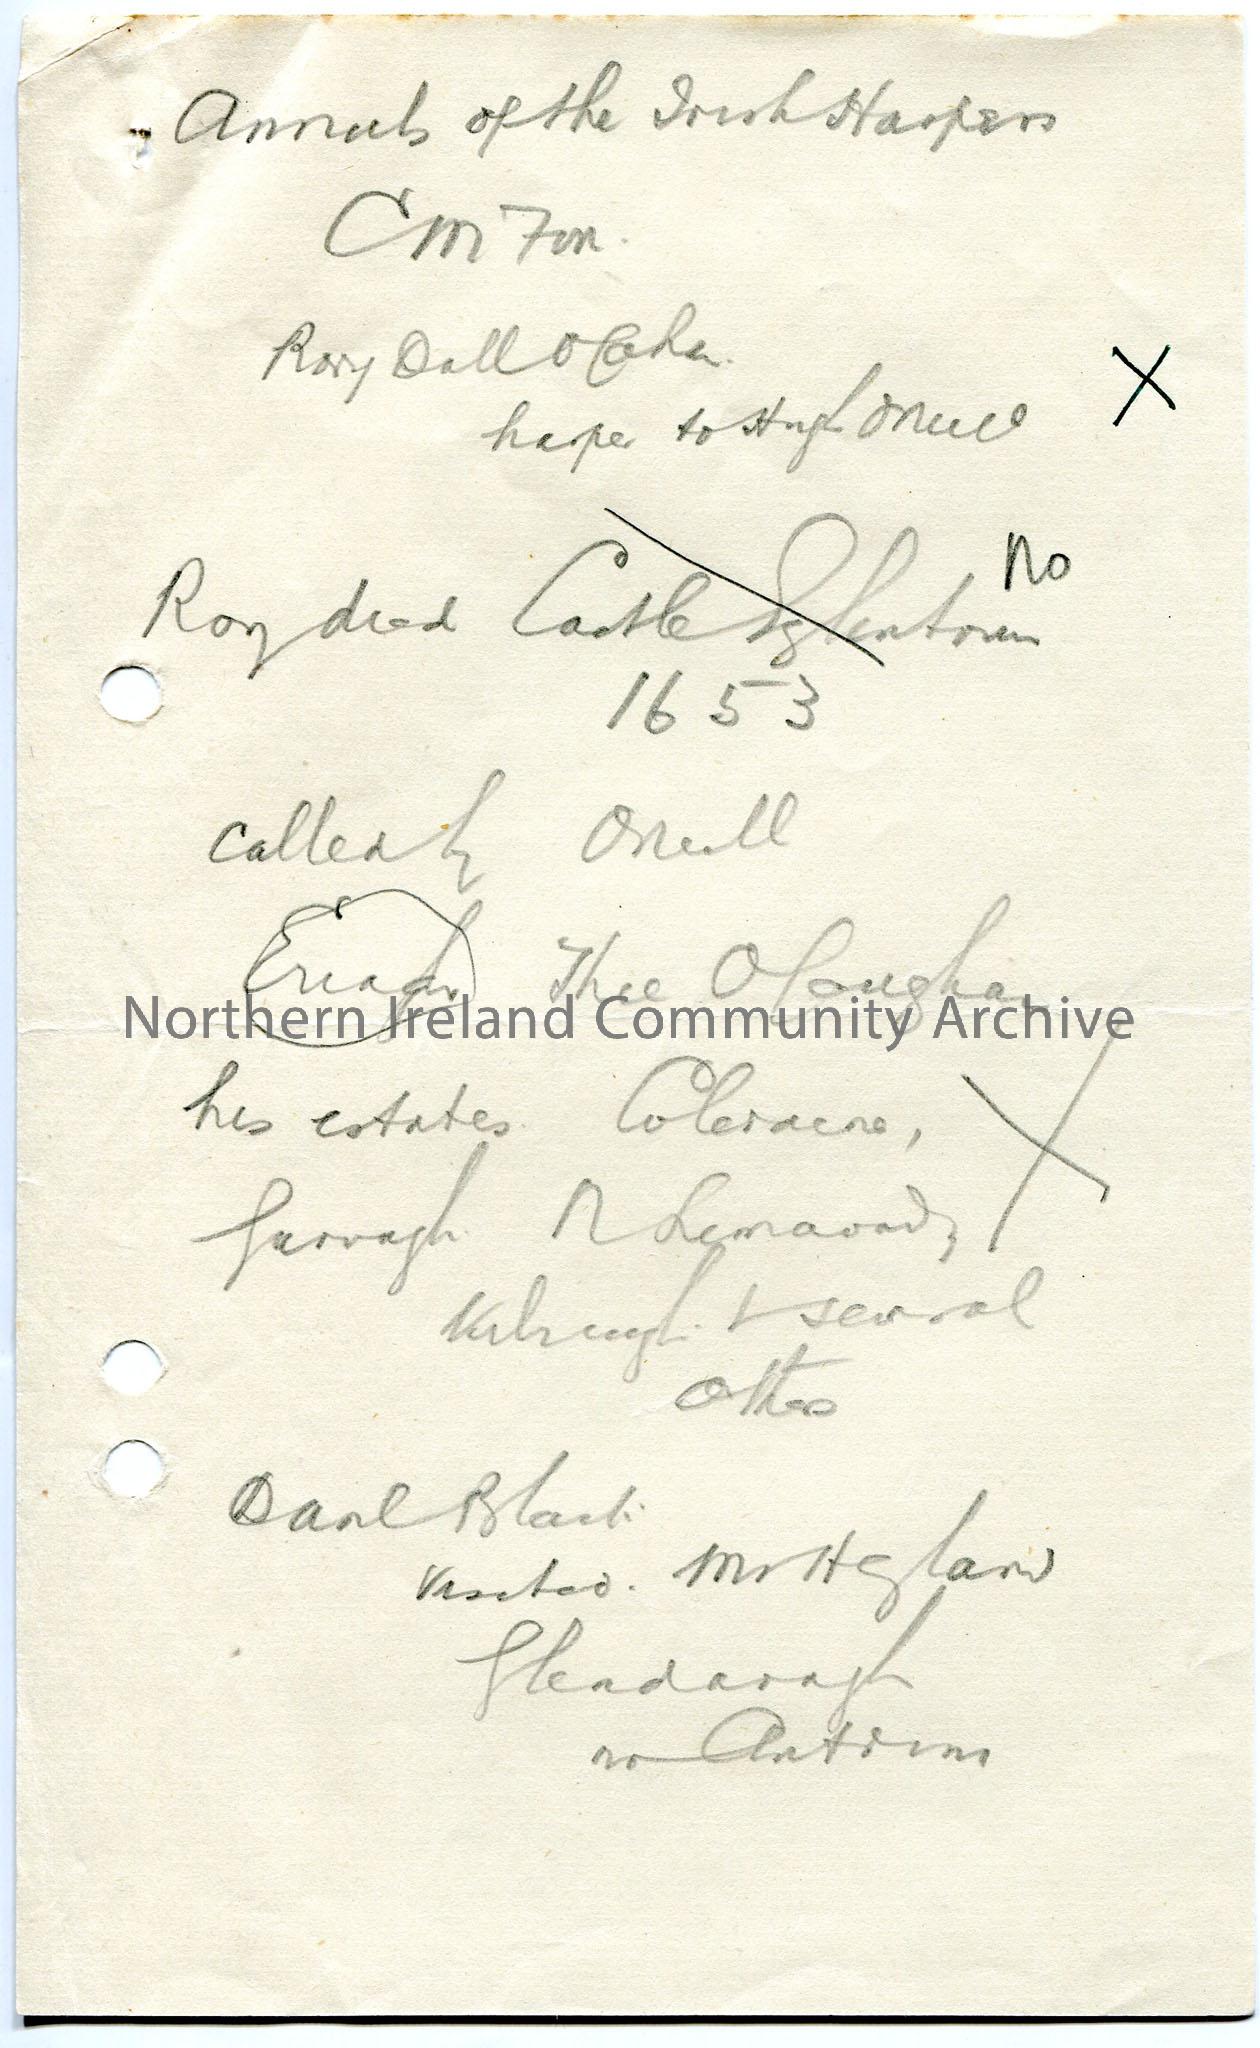 Annals of the Irish Harpers
C M Fox.
Rory Dall O Cahan.
harper to Hugh ONeill
Rory died Castle Eglentoun
No
1653
called by ONeill
Eriagh Thee O
Northern Ireland Community Archive
his estates Coleraine,
Garvagh N Limavady
Kilreagh & several
others
Danl Black
visited. Mr Heyland
Glendaragh
nr Antrim